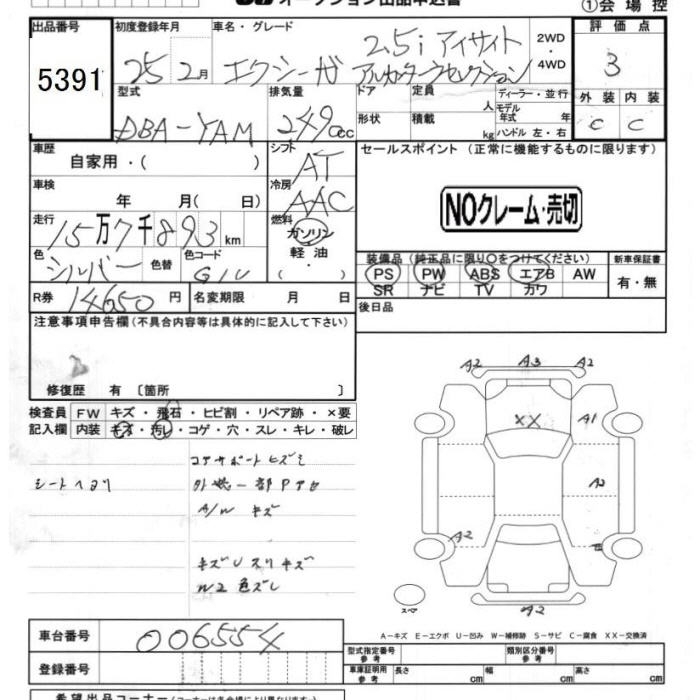 オークション出品申込書
①会場控
出品番号 初度登録年月 車名・グレード 評価点
5391 25 2月 エクシーガ 2.5i アイサイト 2WD・4WD 3
アルカンターラセレクション
型式 排気量 ドア 定員 人 ディーラー・並行 外装 内装
DBA-YAM 2490cc 形状 積載 kg モデル年式 年 C C
ハンドル 左・右
車歴 自家用・( ) シフト AT セールスポイント (正常に機能するものに限ります)
車検 年 月( 日) 冷房 AAC NOクレーム・売切
走行 15万7千893km 燃料 ガソリン
軽油・( )
色 シルバー 色替 色コード G1U 装備品 (純正品に限り○をつけてください) 新車保証書
PS PW ABS エアB AW 有・無
SR ナビ TV カワ
R券 14650円 名変期限 月 日 後日品
注意事項申告欄(不具合内容等は具体的に記入して下さい)
修復歴 有 〔箇所 〕
検査員 FW キズ・飛石・ヒビ割・リペア跡・×要
記入欄 内装 キズ・汚レ・コゲ・穴・スレ・キレ・破レ
コアサポートヒズミ
シートヘタリ 外装一部Pアセ
A/W キズ
キズUスリキズ
W2 色ズレ
A2 A3 A2
XX A1
A2
A2
A2
スペア
A-キズ E-エクボ U-凹み W-補修跡 S-サビ C-腐食 XX-交換済
車台番号 006554
型式指定番号 参考 類別区分番号 参考
登録番号 車庫証明用 参考 長さ cm 幅 cm 高さ cm
希望出品コーナー